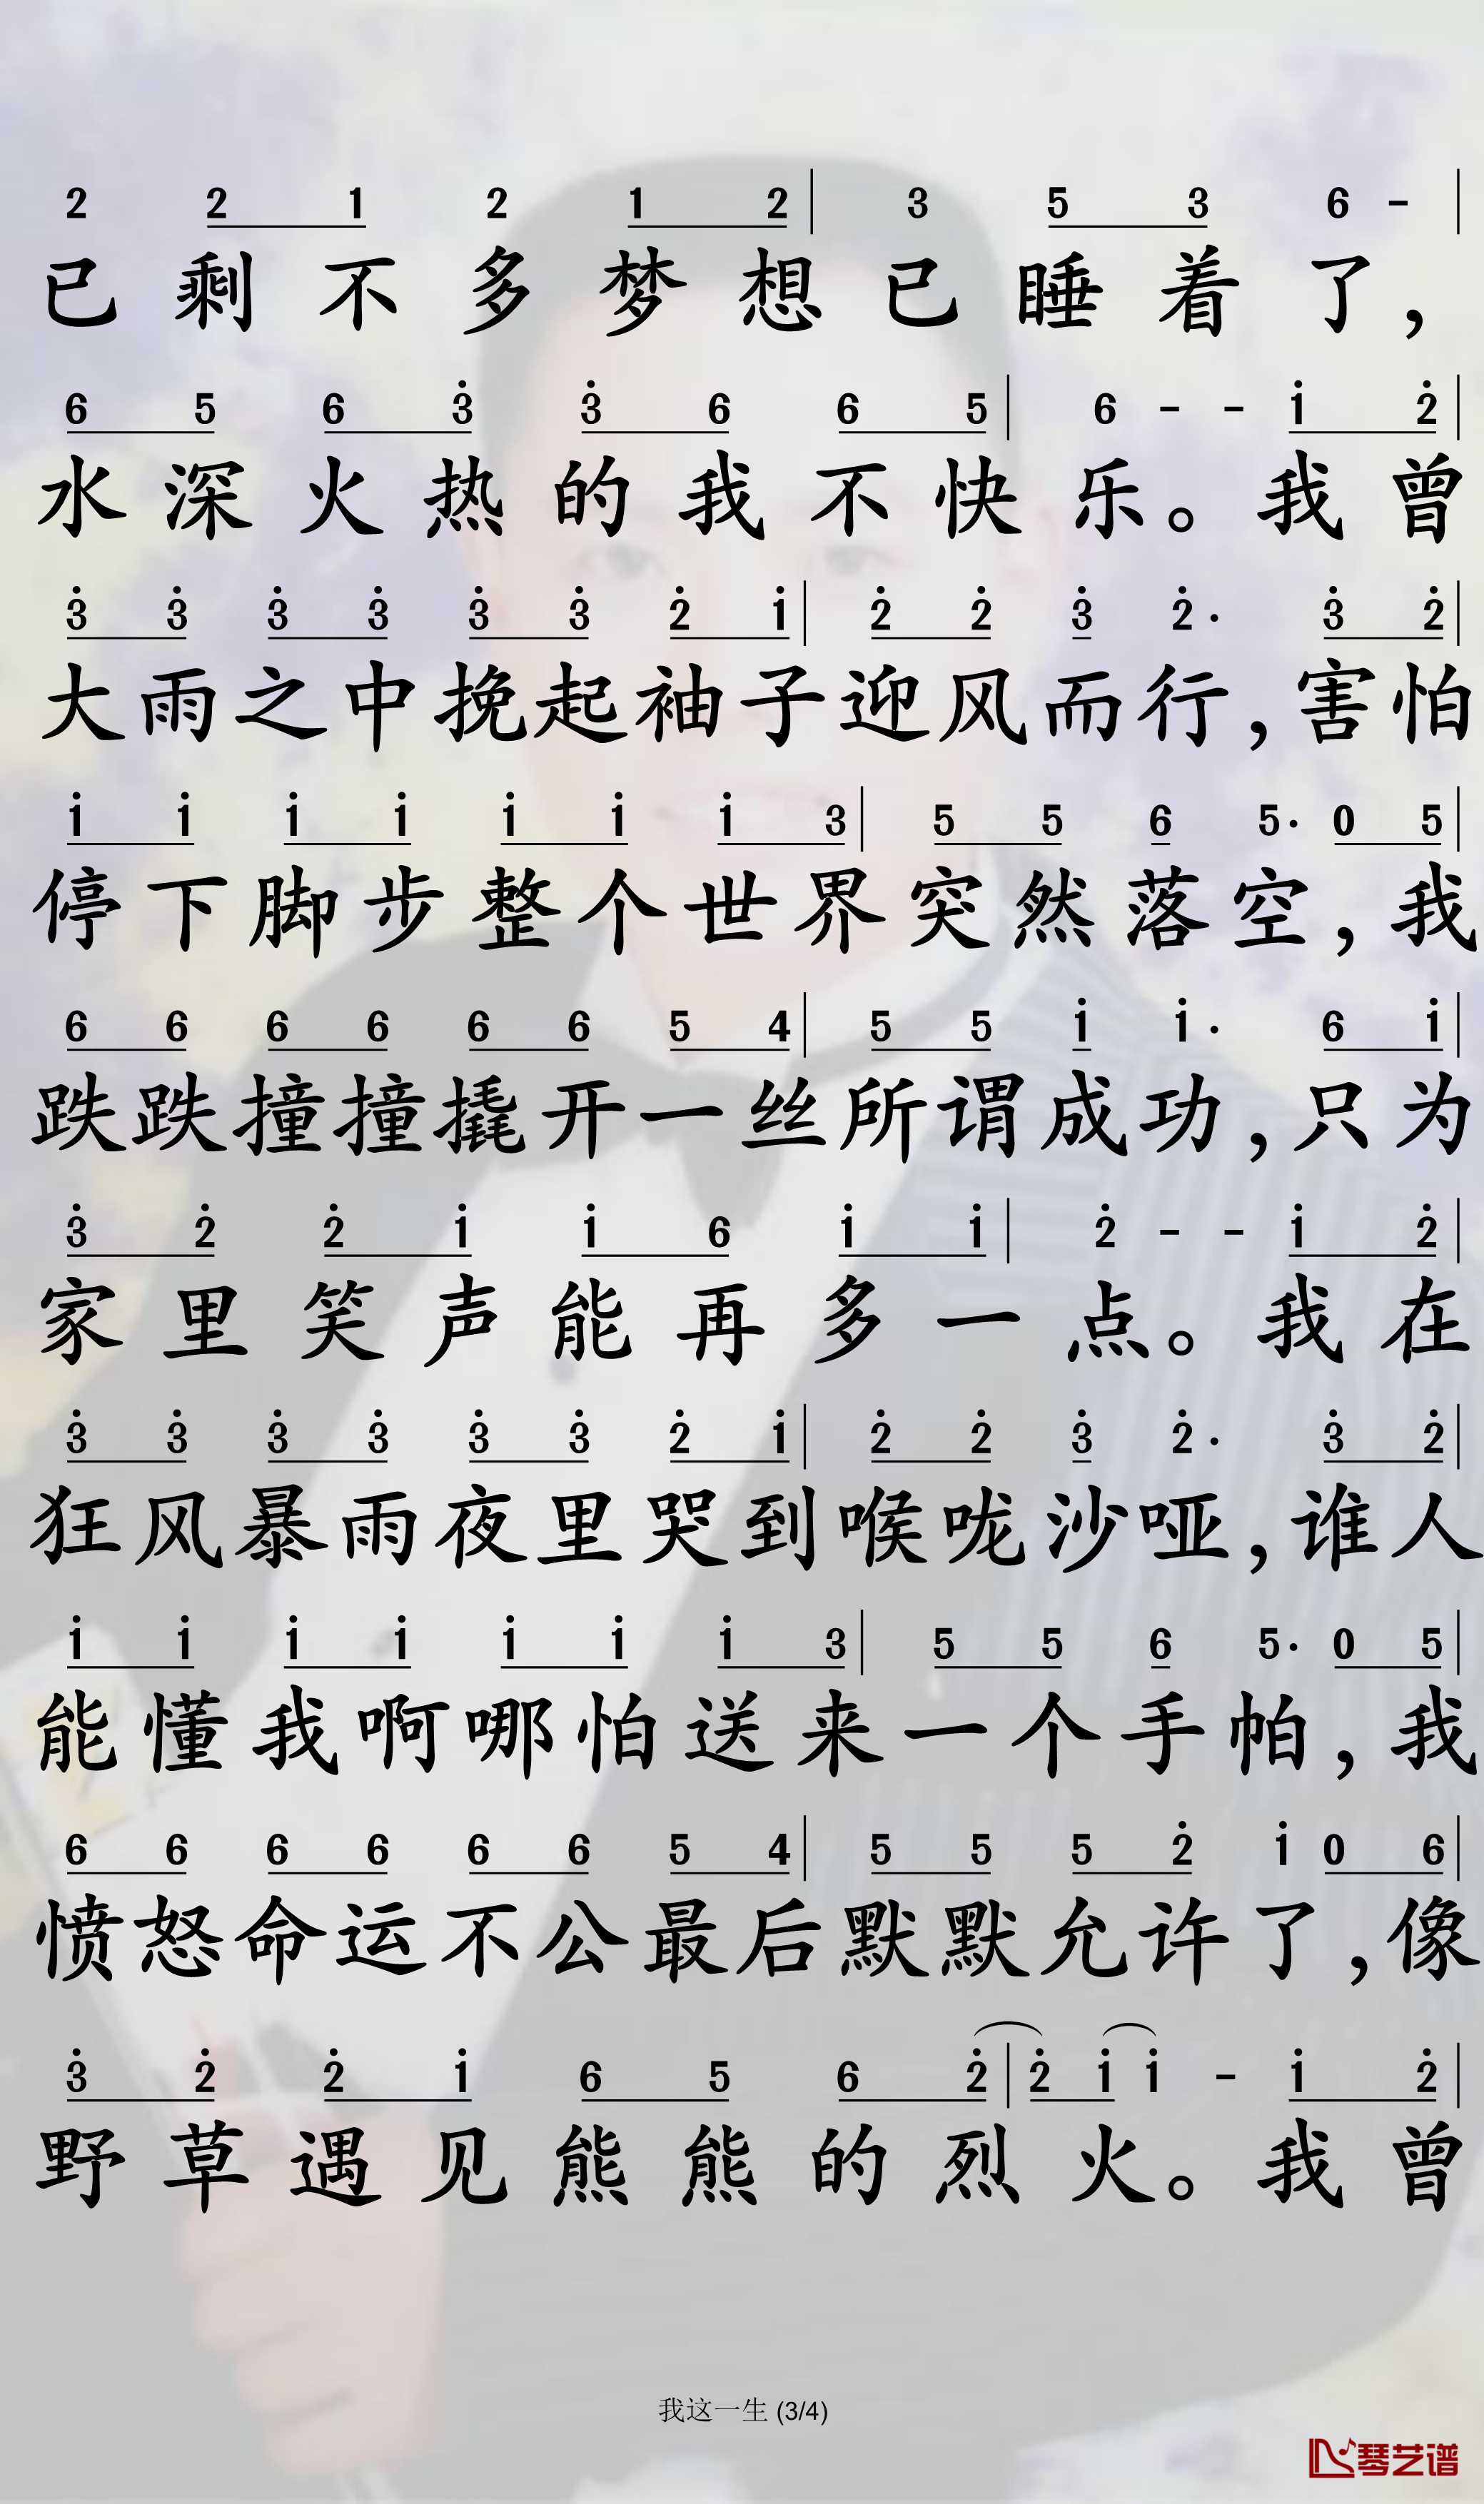 2 2 1 2 1 2 | 3 5 3 6 - |
已剩不多梦想已睡着了，
6 5 6 3̇ 3̇ 6 6 5 | 6 - - 1̇ 2̇ |
水深火热的我不快乐。我曾
3̇ 3̇ 3̇ 3̇ 3̇ 3̇ 2̇ 1̇ | 2̇ 2̇ 3̇ 2̇· 3̇ 2̇ |
大雨之中挽起袖子迎风而行，害怕
1̇ 1̇ 1̇ 1̇ 1̇ 1̇ 1̇ 3 | 5 5 6 5· 0 5 |
停下脚步整个世界突然落空，我
6 6 6 6 6 6 5 4 | 5 5 1̇ 1̇· 6 1̇ |
跌跌撞撞撬开一丝所谓成功，只为
3̇ 2̇ 2̇ 1̇ 1̇ 6 1̇ 1̇ | 2̇ - - 1̇ 2̇ |
家里笑声能再多一点。我在
3̇ 3̇ 3̇ 3̇ 3̇ 3̇ 2̇ 1̇ | 2̇ 2̇ 3̇ 2̇· 3̇ 2̇ |
狂风暴雨夜里哭到喉咙沙哑，谁人
1̇ 1̇ 1̇ 1̇ 1̇ 1̇ 1̇ 3 | 5 5 6 5· 0 5 |
能懂我啊哪怕送来一个手帕，我
6 6 6 6 6 6 5 4 | 5 5 5 2̇ 1̇ 0 6 |
愤怒命运不公最后默默允许了，像
3̇ 2̇ 2̇ 1̇ 6 5 6 2̇ | 2̇ 1̇ 1̇ - 1̇ 2̇ |
野草遇见熊熊的烈火。我曾
我这一生 (3/4)
琴艺谱